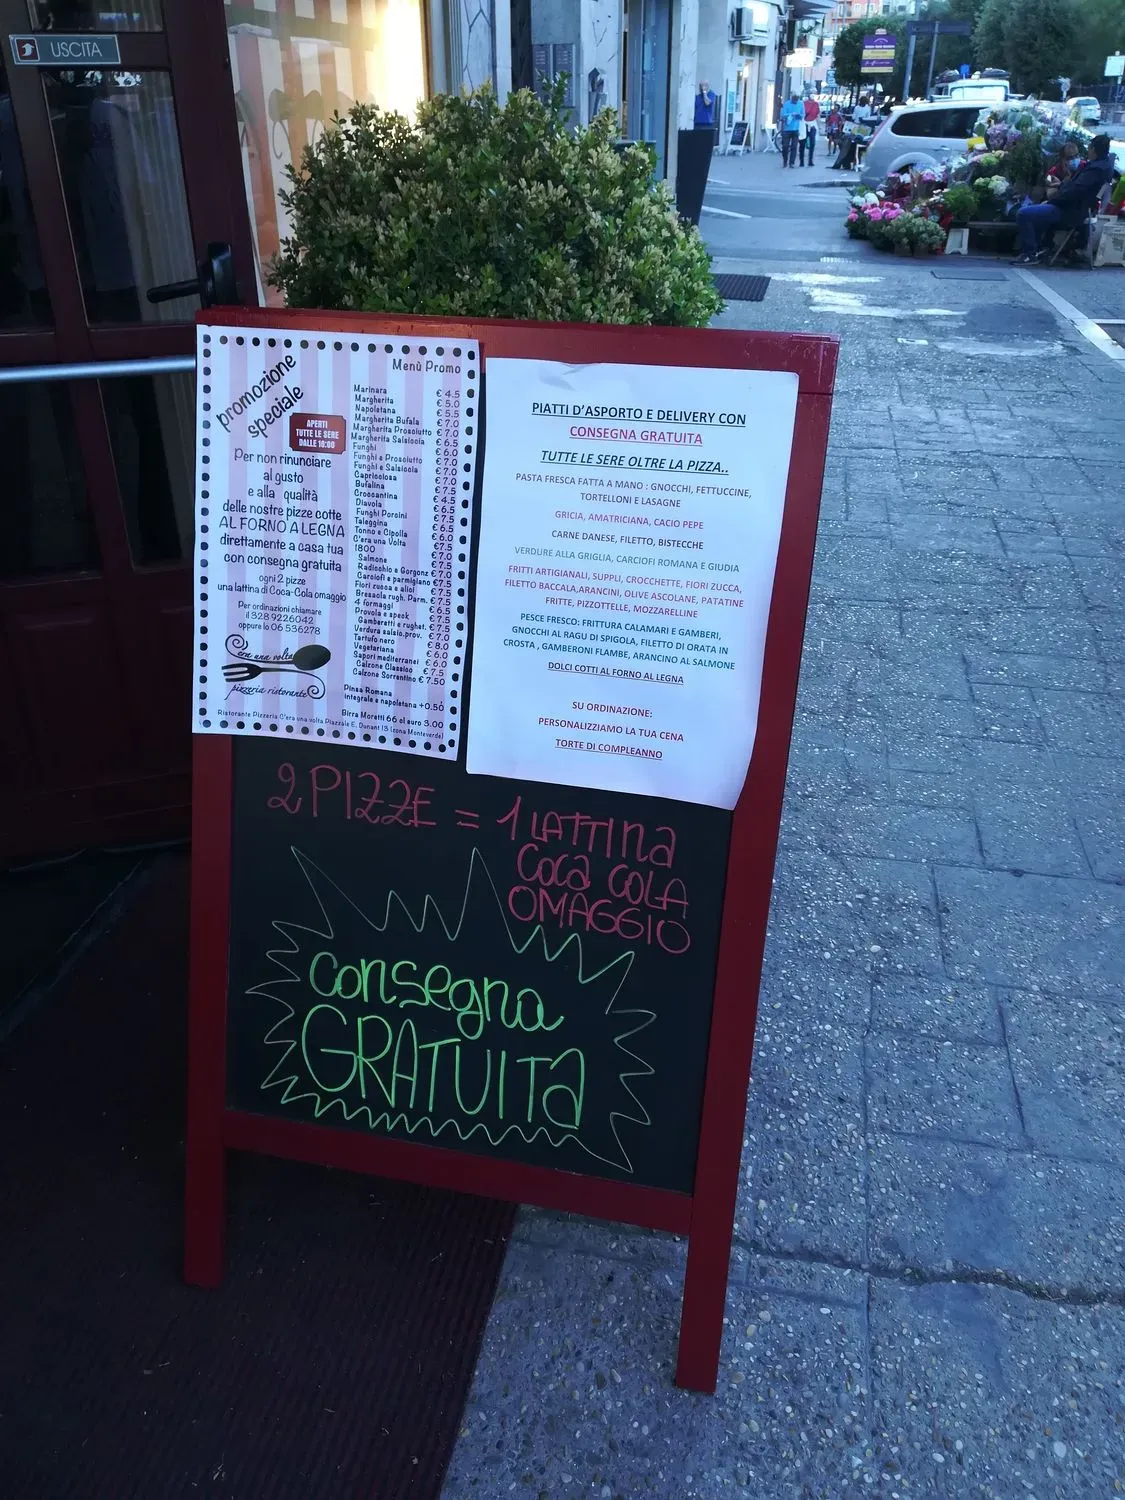 USCITA
promozione
speciale
APERTI
TUTTE LE SERE
DALLE 18:00
Per non rinunciare
al gusto
e alla qualità
delle nostre pizze cotte
AL FORNO A LEGNA
direttamente a casa tua
con consegna gratuita
ogni 2 pizze
una lattina di Coca-Cola omaggio
Per ordinazioni chiamare
il 328 9226042
oppure lo 06 536278
c'era una volta
pizzeria ristorante
Menù Promo
Marinara € 4.5
Margherita € 5.0
Napoletana € 5.5
Margherita Bufala € 7.0
Margherita Prosciutto € 7.0
Margherita Salsiccia € 6.5
Funghi € 6.0
Funghi e Prosciutto € 7.0
Funghi e Salsiccia € 7.0
Capricciosa € 7.0
Bufalina € 7.5
Croccantina € 4.5
Diavola € 6.5
Funghi Porcini € 7.5
Taleggina € 6.5
Tonno e Cipolla € 6.0
C'era una Volta € 7.5
1800
Salmone
Radicchio e Gorgonz € 7.0
Carciofi e parmigiano € 7.5
Fiori zucca e alici
Bresaola rugh. Parm.
4 formaggi
Provola e speck
Gamberetti e rughet.
Verdura salsic.prov.
Tartufo nero € 8.0
Vegetariana € 6.0
Sapori mediterranei € 6.0
Calzone Classico € 7.5
Calzone Sorrentino € 7.50
Pinsa Romana
integrale e napoletana +0.50
Birra Moretti 66 cl euro 3.00
Ristorante Pizzeria C'era una volta Piazzale E. Dunant 13 (zona Monteverde)
PIATTI D'ASPORTO E DELIVERY CON
CONSEGNA GRATUITA
TUTTE LE SERE OLTRE LA PIZZA..
PASTA FRESCA FATTA A MANO : GNOCCHI, FETTUCCINE,
TORTELLONI E LASAGNE
GRICIA, AMATRICIANA, CACIO PEPE
CARNE DANESE, FILETTO, BISTECCHE
VERDURE ALLA GRIGLIA, CARCIOFI ROMANA E GIUDIA
FRITTI ARTIGIANALI, SUPPLI, CROCCHETTE, FIORI ZUCCA,
FILETTO BACCALA,ARANCINI, OLIVE ASCOLANE, PATATINE
FRITTE, PIZZOTTELLE, MOZZARELLINE
PESCE FRESCO: FRITTURA CALAMARI E GAMBERI,
GNOCCHI AL RAGU DI SPIGOLA, FILETTO DI ORATA IN
CROSTA , GAMBERONI FLAMBE, ARANCINO AL SALMONE
DOLCI COTTI AL FORNO AL LEGNA
SU ORDINAZIONE:
PERSONALIZZIAMO LA TUA CENA
TORTE DI COMPLEANNO
2 PIZZE = 1 LATTINA
COCA COLA
OMAGGIO
CONSEGNA
GRATUITA